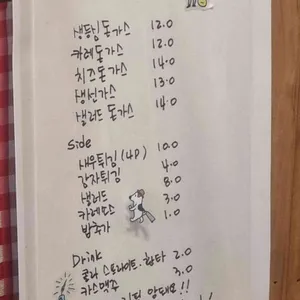 생등심돈가스 12.0
카레돈가스 12.0
치즈돈가스 14.0
생선가스 13.0
샐러드돈가스 14.0
Side
새우튀김(4P) 10.0
감자튀김 4.0
샐러드 8.0
카레소스 3.0
밥추가 1.0
Drink
콜라 스프라이트. 환타 2.0
카스맥주 3.0
안돼요!!